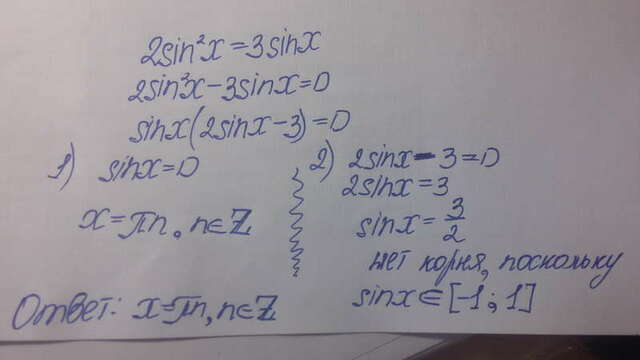 2sin²x=3sinx
2sin²x-3sinx=0
sinx(2sinx-3)=0
1) sinx=0
x=πn, n∈Z
2) 2sinx-3=0
2sinx=3
sinx=3/2
нет корня, поскольку
sinx∈[-1;1]
Ответ: x=πn, n∈Z